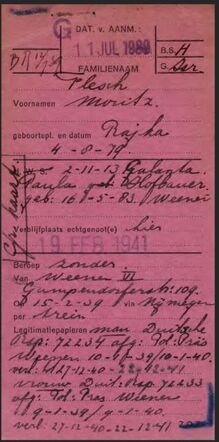 G
DAT. v. AANM.:
11 JUL 1939
B.S. H
G. Isr.
FAMILIENAAM
Flesch
Voornamen Moritz.
geboortepl. en datum Rajka
4-8-79.
2-11-13 Galanta.
Paula Hofbauer.
geb: 16-5-83 Weenen
Verblijfplaats echtgenoot(e) hier
19 FEB 1941
Beroep zonder.
Van Weenen VI
Gumpendorferstr: 109.
Op 15-2-39 via Nijmegen
per trein
Legitimatiepapieren man Duitsche
Rsp: 72234 afg: Pol: Präs
Weenen 10-1-39/10-1-40.
verl: 27-12-40 22-12-41
vrouw Duit: Rsp. 72233
afg: Pol: Pres. Weenen
9-1-39/9-1-40.
verl: 27-12-40 - 22-12-41